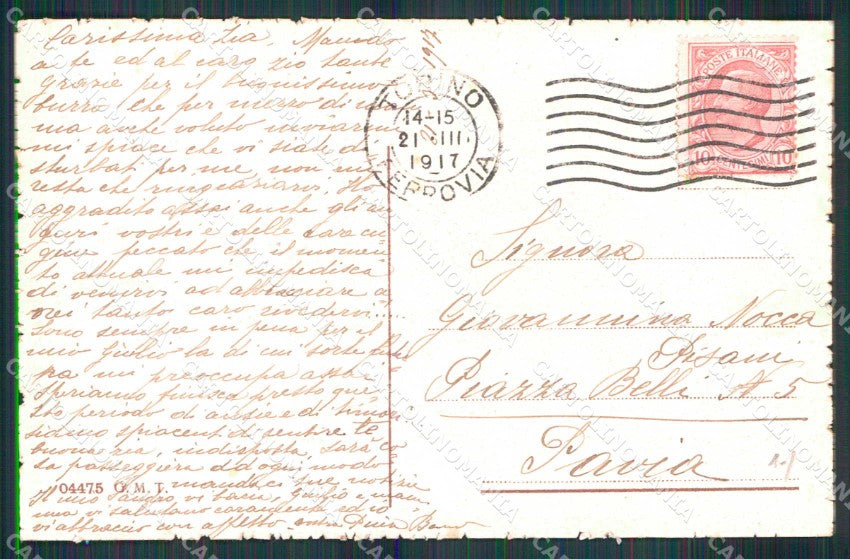 Carissima Zia, Mando
a te ed al caro zio tante
grazie per il buonissimo
burro che per mezzo di
ma avete voluto inviarmi
mi spiace che vi siate di
sturbati per me, non mi
resta che ringraziarvi. Ho
aggradito assai anche gli au
guri vostri e delle care cu
gine peccato che il momen
to attuale mi impedisca
di venirvi ad abbracciare a
vrei tanto caro rivedervi.....
Sono sempre in pena per il
mio Giulio la di cui sorte futu
ra mi preoccupa assai
speriamo finisca presto que
sto periodo di ansie e di timori
siamo spiacenti di sentire te
buona zia, indisposta, sarà co
sa passeggiera ad ogni modo
mandaci tue notizie
Il mio vi bacia, Giulio e mam
ma vi salutano caramente ed io
vi abbraccio con affetto
04475 G. M. T.
1917
TORINO
14-15
21 III
1917
FERROVIA
POSTE ITALIANE
10 CENTESIMI 10
Signora
Giovannina Nocca
Pisani
Piazza Belli N 5
Pavia
CARTOLINOMANIA